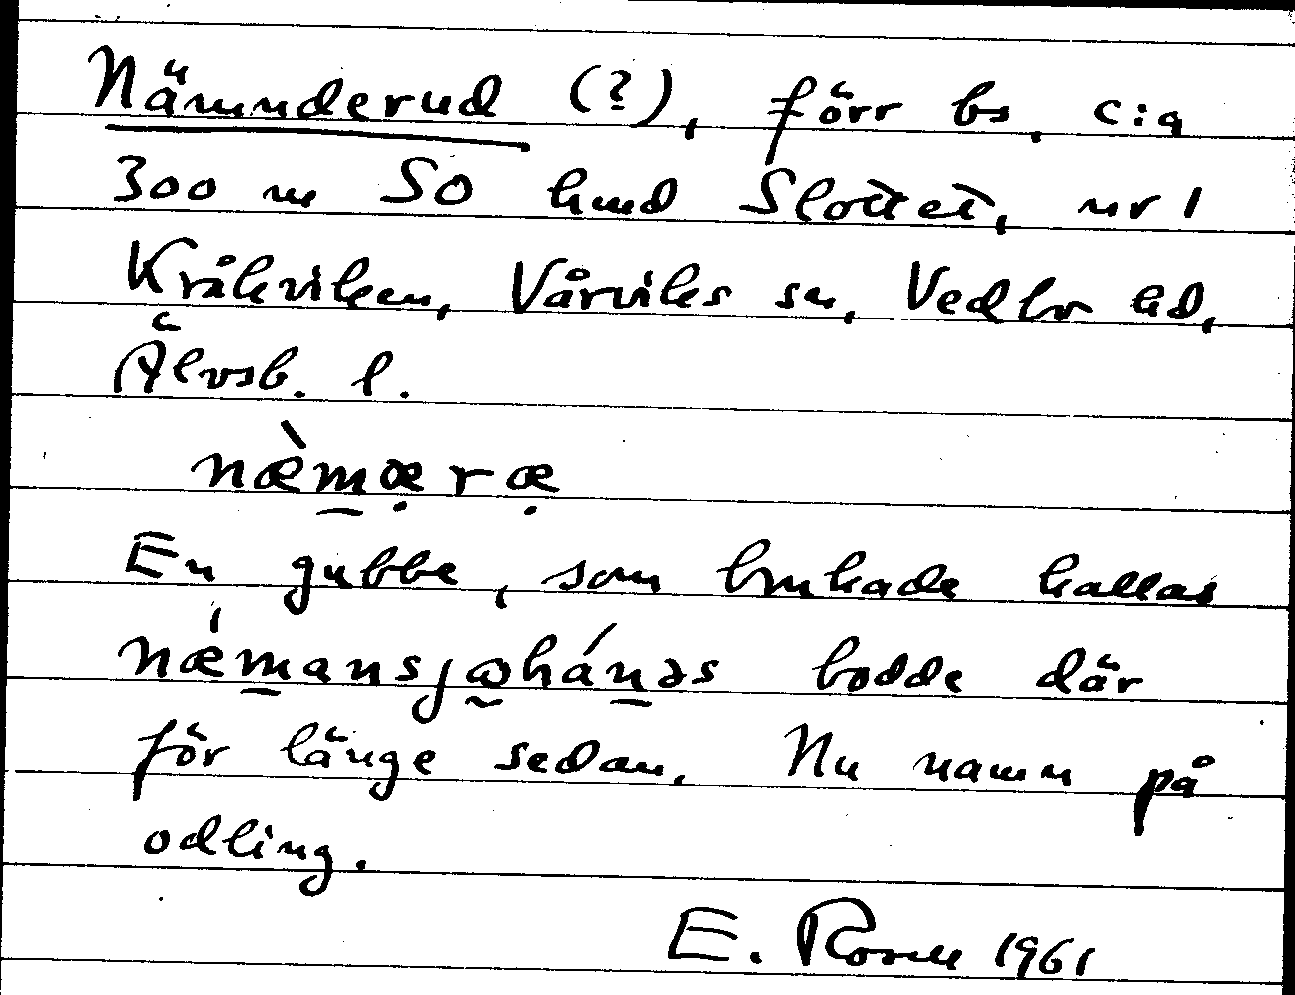 Nämnderud (?), förr bs. c:a
300 m SO hmd Slottet, nr 1
Kråkviken, Vårviks sn, Vedbo hd,
Älvsb. l.
næ̀mæ̣ræ̣
En gubbe, som brukade kallas
nǽmansjøhánəs bodde där
för länge sedan. Nu namn på
odling.
E. Rosell 1961